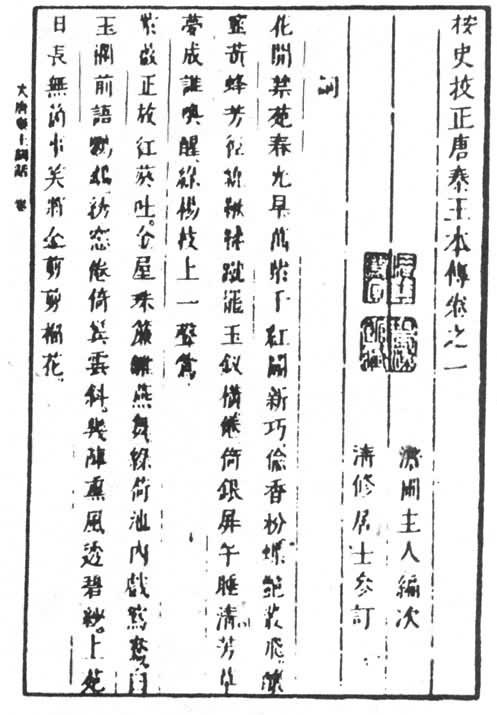 按史挍正唐秦王本傳卷之一
澹圃主人編次
清修居士參訂
詞
花開禁苑春光早萬紫千紅鬪新巧偷香粉蝶艶叢飛釀
蜜黃蜂芳徑遶鞦韆蹴罷玉釵橫倦倚銀屏午睡清芳草
夢成誰喚醒綠楊枝上一聲鶯
正放紅葵吐金屋珠簾雛燕舞綠荷池內戲鴛鴦白
玉欄前語鸚鵡窓倦倚雲斜幾陣熏風透碧紗上苑
日長無箇事笑將金剪剪榴花
大唐秦王詞話 卷